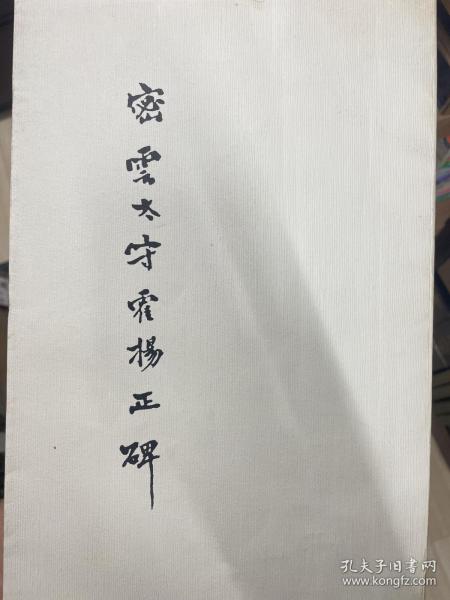 密雲太守霍揚正碑
孔夫子旧书网
www.kongfz.com